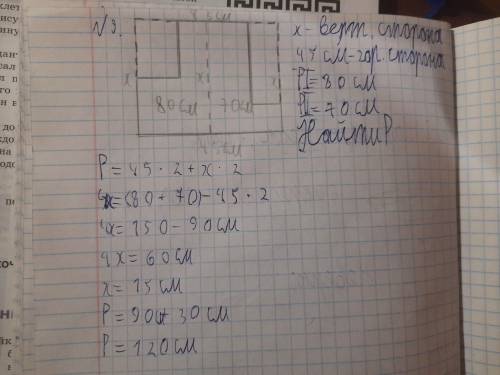 №3.
45 см
x - верт. сторона
45 см - гор. сторона
PI = 80 см
PII = 70 см
Найти P
x
x
x
80 см
70 см
45 см
P = 45 · 2 + x · 2
4x = (80 + 70) - 45 · 2
4x = 150 - 90 см
4x = 60 см
x = 15 см
P = 90 + 30 см
P = 120 см